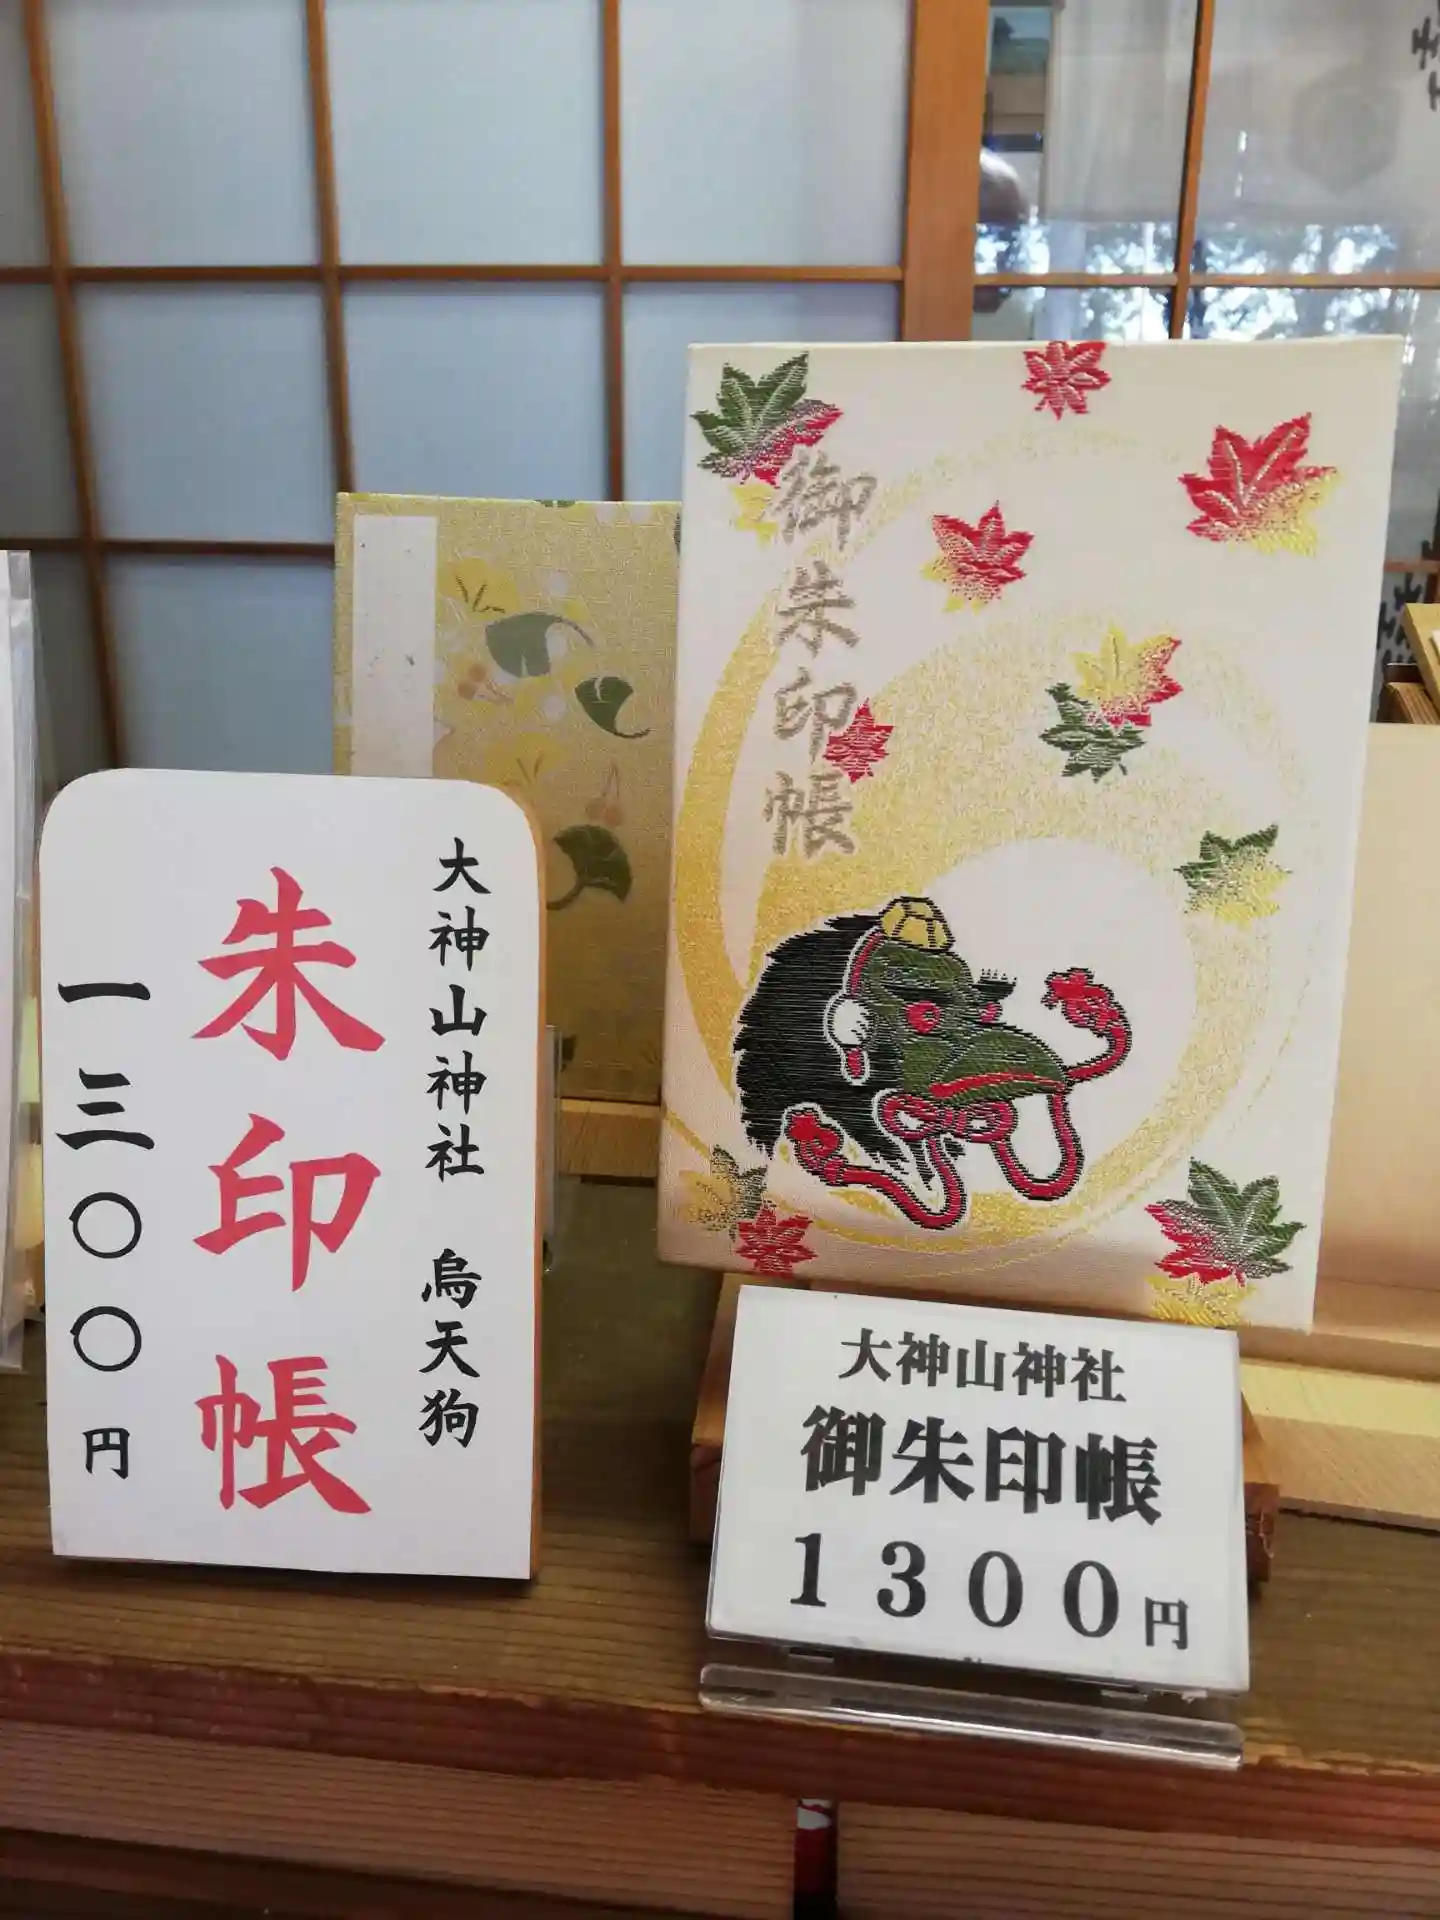 大神山神社 烏天狗
朱印帳
一三〇〇円
御朱印帳
大神山神社
御朱印帳
1300円